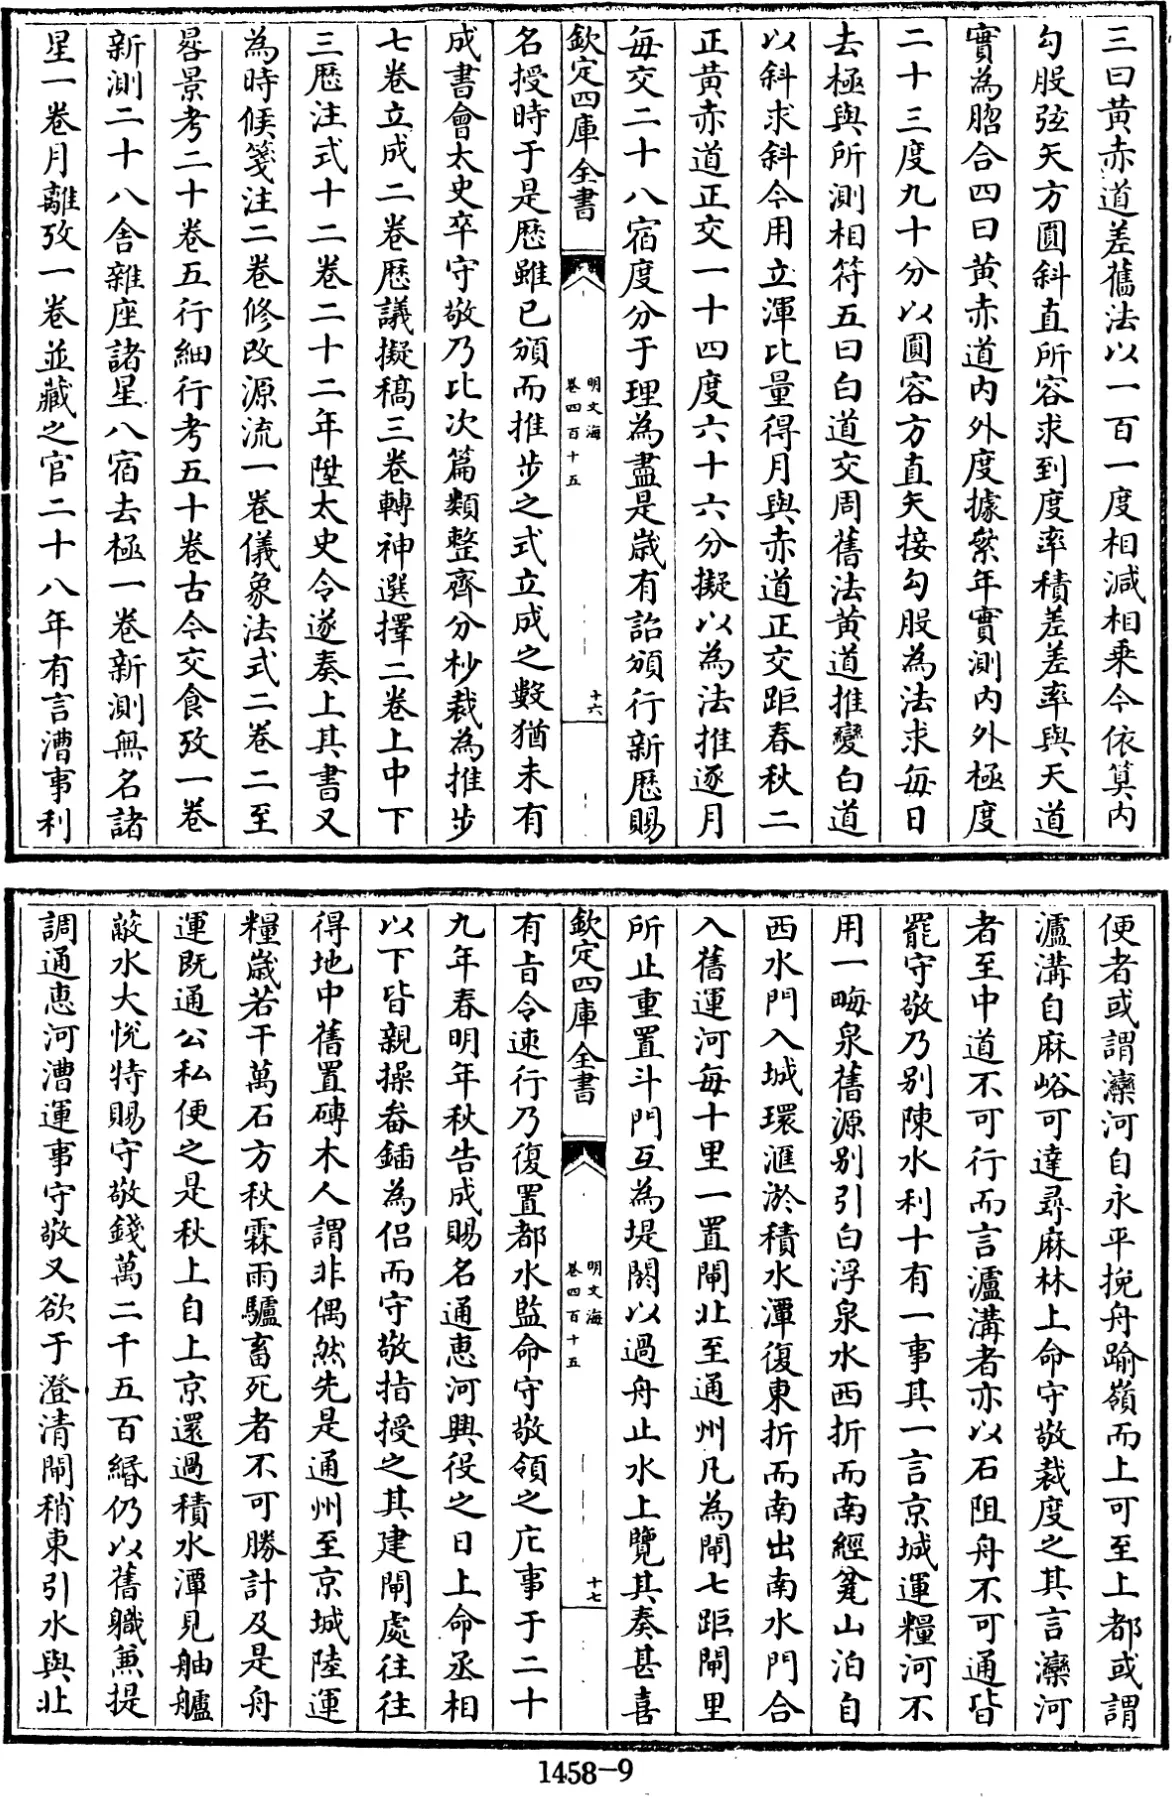 三曰黄赤道差舊法以一百一度相減相乗今依算内
勾股弦矢方圓斜直所容求到度率積差差率與天道
實為脗合四曰黄赤道内外度據繁年實測内外極度
二十三度九十分以圓容方直矢接勾股為法求毎日
去極與所測相符五曰白道交周舊法黄道推變白道
以斜求斜今用立渾比量得月與赤道正交距春秋二
正黄赤道正交一十四度六十六分擬以為法推逐月
毎交二十八宿度分于理為盡是歳有詔頒行新厯賜
欽定四庫全書
明文海
卷四百十五
十六
名授時于是厯雖已頒而推步之式立成之數猶未有
成書會太史卒守敬乃比次篇類整齊分杪裁為推步
七卷立成二卷厯議擬稿三卷轉神選擇二卷上中下
三厯注式十二卷二十二年陞太史令遂奏上其書又
為時候箋注二卷修改源流一卷儀象法式二卷二至
晷景考二十卷五行細行考五十卷古今交食攷一卷
新測二十八舍雜座諸星八宿去極一卷新測無名諸
星一卷月離攷一卷並藏之官二十八年有言漕事利
便者或謂灤河自永平挽舟踰嶺而上可至上都或謂
瀘溝自麻峪可達尋麻林上命守敬裁度之其言灤河
者至中道不可行而言瀘溝者亦以石阻舟不可通皆
罷守敬乃别陳水利十有一事其一言京城運糧河不
用一畮泉舊源别引白浮泉水西折而南經瓮山泊自
西水門入城環滙淤積水潭復東折而南出南水門合
入舊運河每十里一置閘北至通州凡為閘七距閘里
所止重置斗門互為堤閼以過舟止水上覽其奏甚喜
欽定四庫全書
明文海
卷四百十五
十七
有旨令速行乃復置都水監命守敬領之庀事于二十
九年春明年秋告成賜名通惠河興役之日上命丞相
以下皆親操畚鍤為侶而守敬指授之其建閘處往往
得地中舊置磚木人謂非偶然先是通州至京城陸運
糧歳若干萬石方秋霖雨驢畜死者不可勝計及是舟
運既通公私便之是秋上自上京還過積水潭見舳艫
蔽水大悅特賜守敬錢萬二千五百緡仍以舊職兼提
調通惠河漕運事守敬又欲于澄清閘稍東引水與北
1458-9